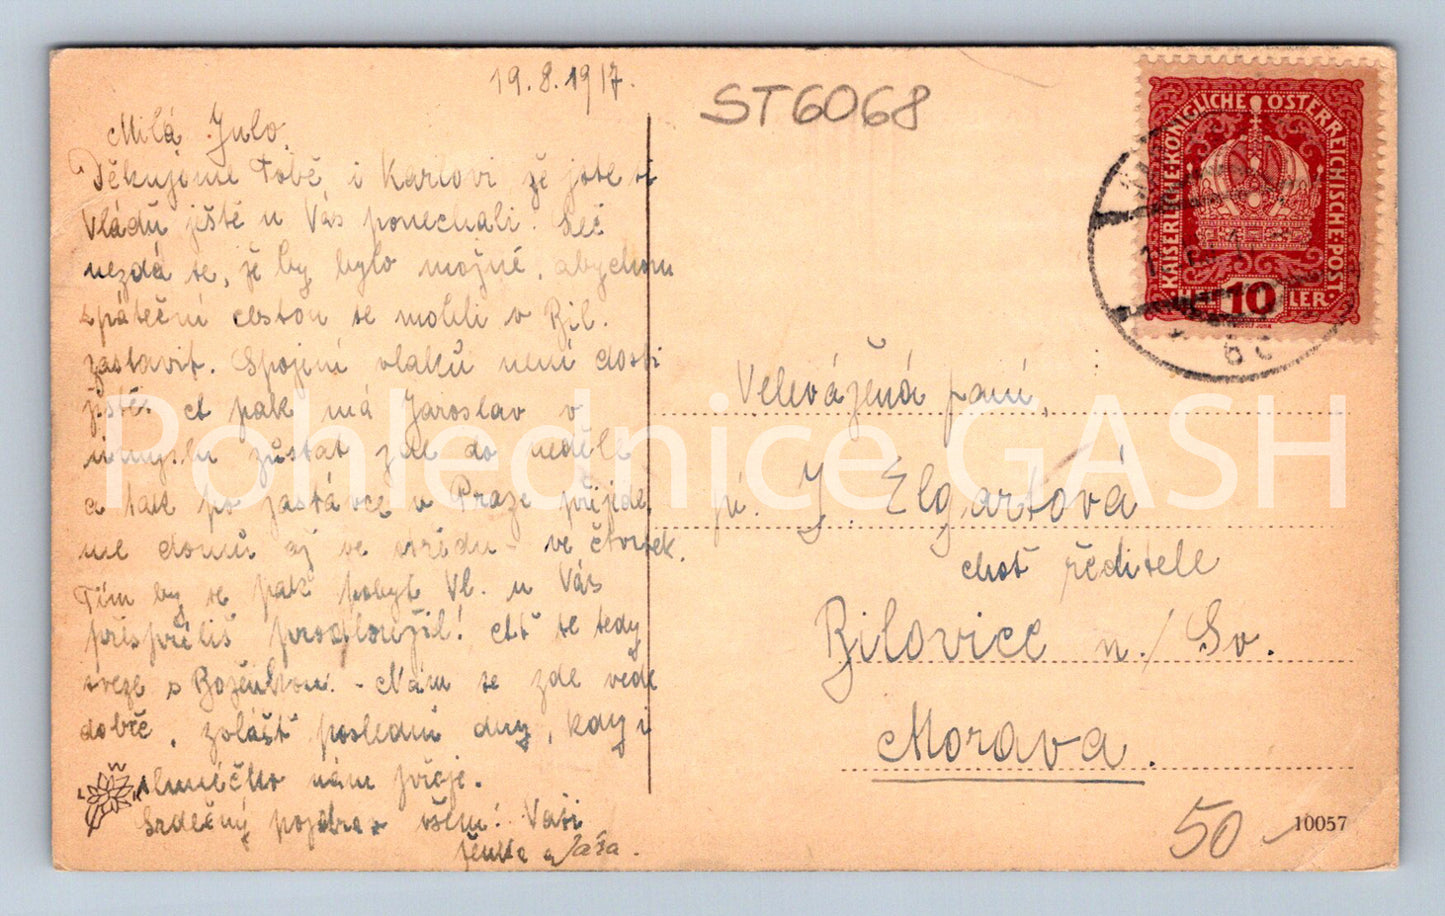 19.8.1917.
ST6068
Milá Julo,
Děkujeme Tobě i Karlovi že jste si
Vládu ještě u Vás ponechali. Leč
nezdá se, že by bylo možné, abychom
zpáteční cestou se mohli v Bil.
zastavit. Spojení vlaků není dosti
jisté. A pak má Jaroslav v
úmyslu zůstat zde do neděle
a tak po zastávce v Praze přijede
me domů až ve středu - ve čtvrtek.
Tím by se pak pobyt Vl. u Vás
příspříliš prodloužil! Ať se tedy
sveze s Boženkou. - Nám se zde vede
dobře, zvlášť poslední dny, kdy i
sluníčko nám přeje.
Srdečný pozdrav všem! Vaši
a Jaša.
KAISERLICHE KÖNIGLICHE ÖSTERREICHISCHE POST
HEL 10 LER
Velevážená paní,
pí. J. Elgartová
choť ředitele
Bilovice n./Sv.
Morava.
50-
10057
L W
Pohlednice GASH